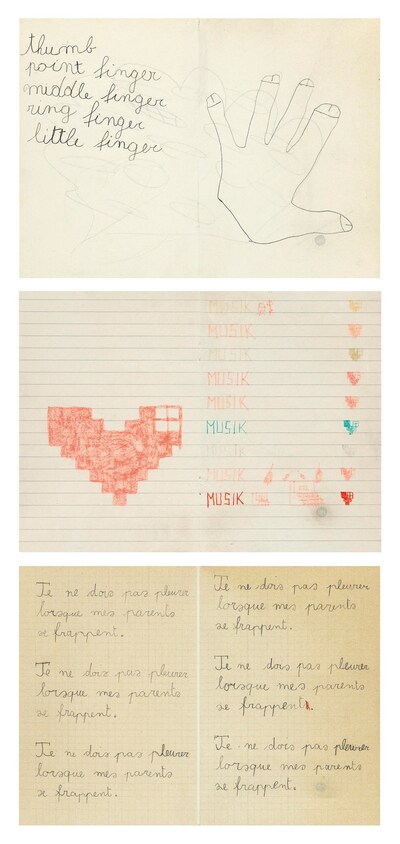 thumb
point finger
middle finger
ring finger
little finger
MUSIK
MUSIK
MUSIK
MUSIK
MUSIK
MUSIK
MUSIK
MUSIK
MUSIK
Je ne dois pas pleurer
lorsque mes parents
se frappent.
Je ne dois pas pleurer
lorsque mes parents
se frappent.
Je ne dois pas pleurer
lorsque mes parents
se frappent.
Je ne dois pas pleurer
lorsque mes parents
se frappent.
Je ne dois pas pleurer
lorsque mes parents
se frappent.
Je ne dois pas pleurer
lorsque mes parents
se frappent.